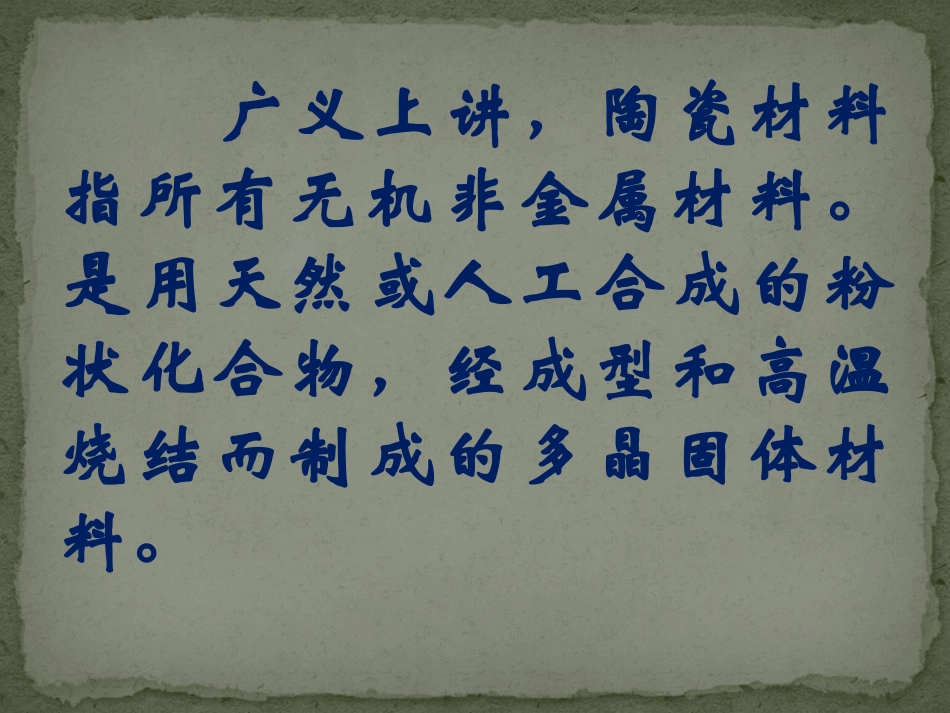 广义上讲，陶瓷材料
指所有无机非金属材料。
是用天然或人工合成的粉
状化合物，经成型和高温
烧结而制成的多晶固体材
料。